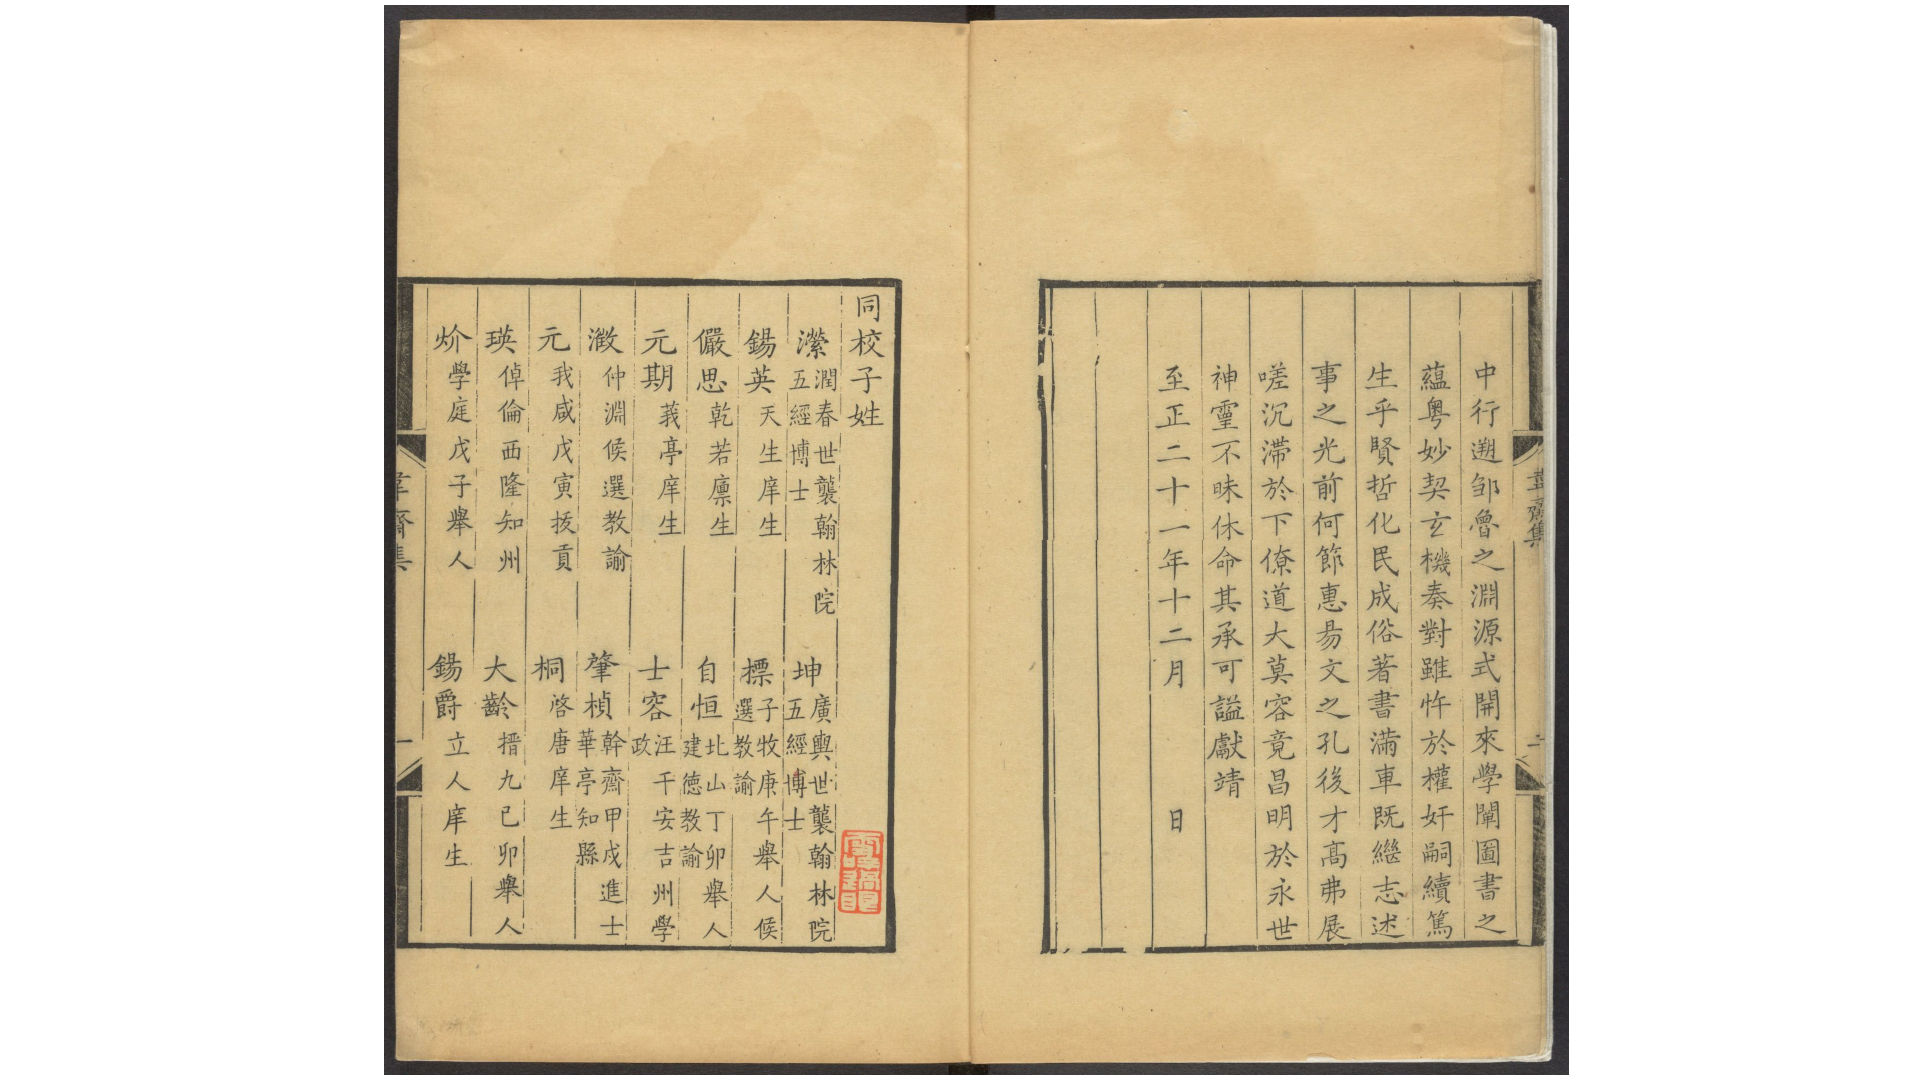 中行遡邹魯之淵源式開來學闡圖書之
蘊粤妙契玄機奏對雖忤於權奸嗣續篤
生乎賢哲化民成俗著書滿車既繼志述
事之光前何節惠昜文之孔後才髙弗展
嗟沉滯於下僚道大莫容竟昌明於永世
神靈不昧休命其承可謚獻靖
至正二十一年十二月　日
韋齋集
二
同校子姓
瀠潤春世襲翰林院五經博士　坤廣輿世襲翰林院五經博士
錫英天生庠生　標子牧庚午舉人候選教諭
儼思乾若廪生　自恒北山丁卯舉人建徳教諭
元期莪亭庠生　士容汪千安吉州學政
澂仲淵候選教諭　肇楨幹齋甲戌進士華亭知縣
元我咸戊寅拔貢　桐啓唐庠生
瑛倬倫西隆知州　大齡搢九己卯舉人
炌學庭戊子舉人　錫爵立人庠生
韋齋集
一